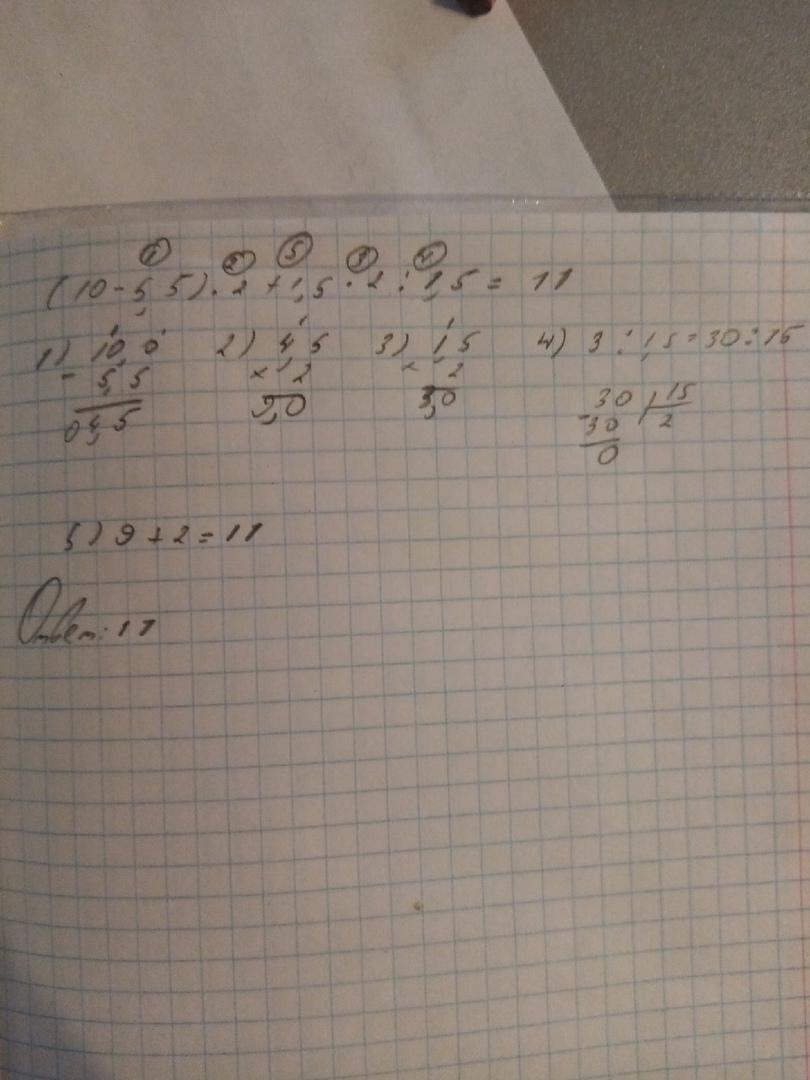 ① ② ⑤ ③ ④
(10-5,5)·2+1,5·2:1,5= 11
1) 10,0 2) 4,5 3) 1,5 4) 3:1,5=30:15
- 5,5 × 2 × 2 30 | 15
04,5 9,0 3,0 -30 2
0
5) 9+2=11
Ответ: 11